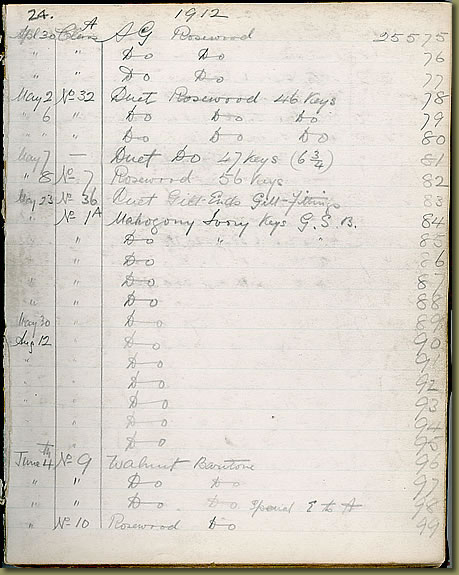 24. 1912
Apl 30 Class A A G Rosewood 25575
" " Do Do 76
" " Do Do 77
May 2 No 32 Duet Rosewood 46 Keys 78
" 6 " Do Do Do 79
" " Do Do Do 80
May 7 — Duet Do 47 Keys (6 3/4) 81
" 8 No 7 Rosewood 56 Keys 82
May 23 No 36 Duet Gilt Ends Gilt-Fittings 83
" No 1A Mahogony Ivory Keys G. S. B. 84
" Do " " 85
" " Do 86
" " Do 87
" " Do 88
May 30 " Do 89
Aug 12 " Do 90
" Do 91
" Do 92
" Do 93
" Do 94
" Do 95
June 4th No 9 Walnut Baritone 96
" " Do Do 97
" " Do Do Special E to A 98
" No 10 Rosewood Do 99